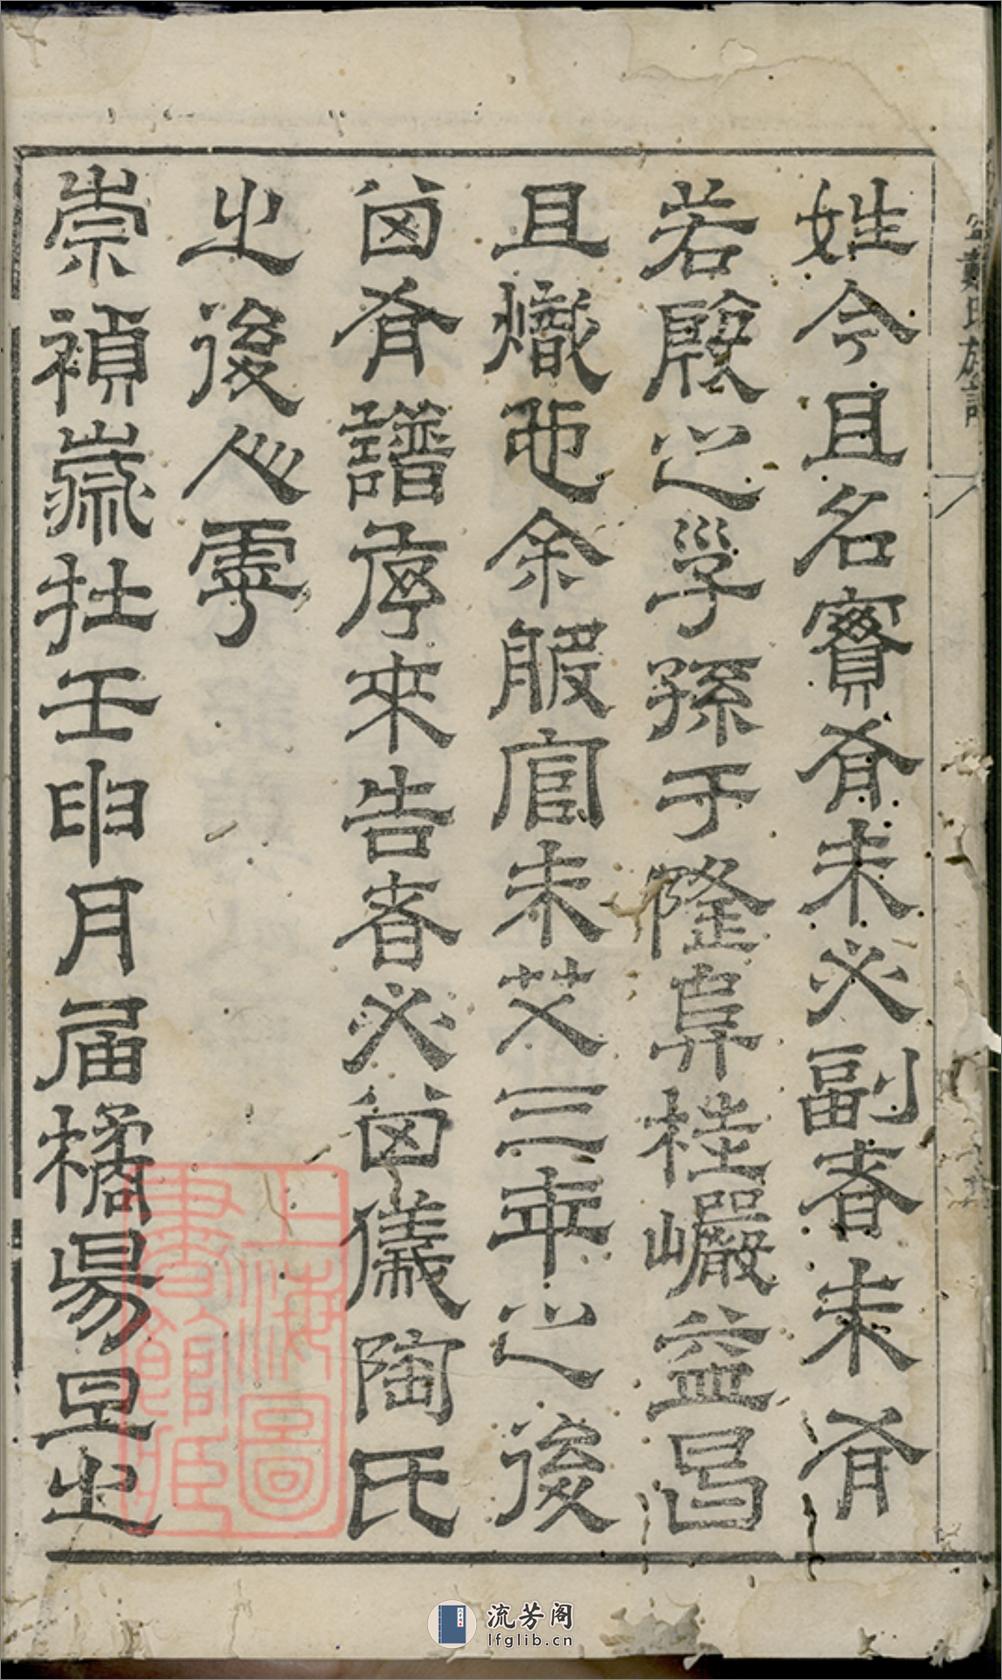 姓今且名實有未必副者未有
若殷之孚孫于隆阜桂巖益昌
且熾也余服官未艾三年之後
囪有譜序來告者必囪儀陶氏
之後人虖
崇禎歲在壬申月届橘昜𤯔之
戴氏族譜
上海圖書館藏
流芳阁
lfglib.cn